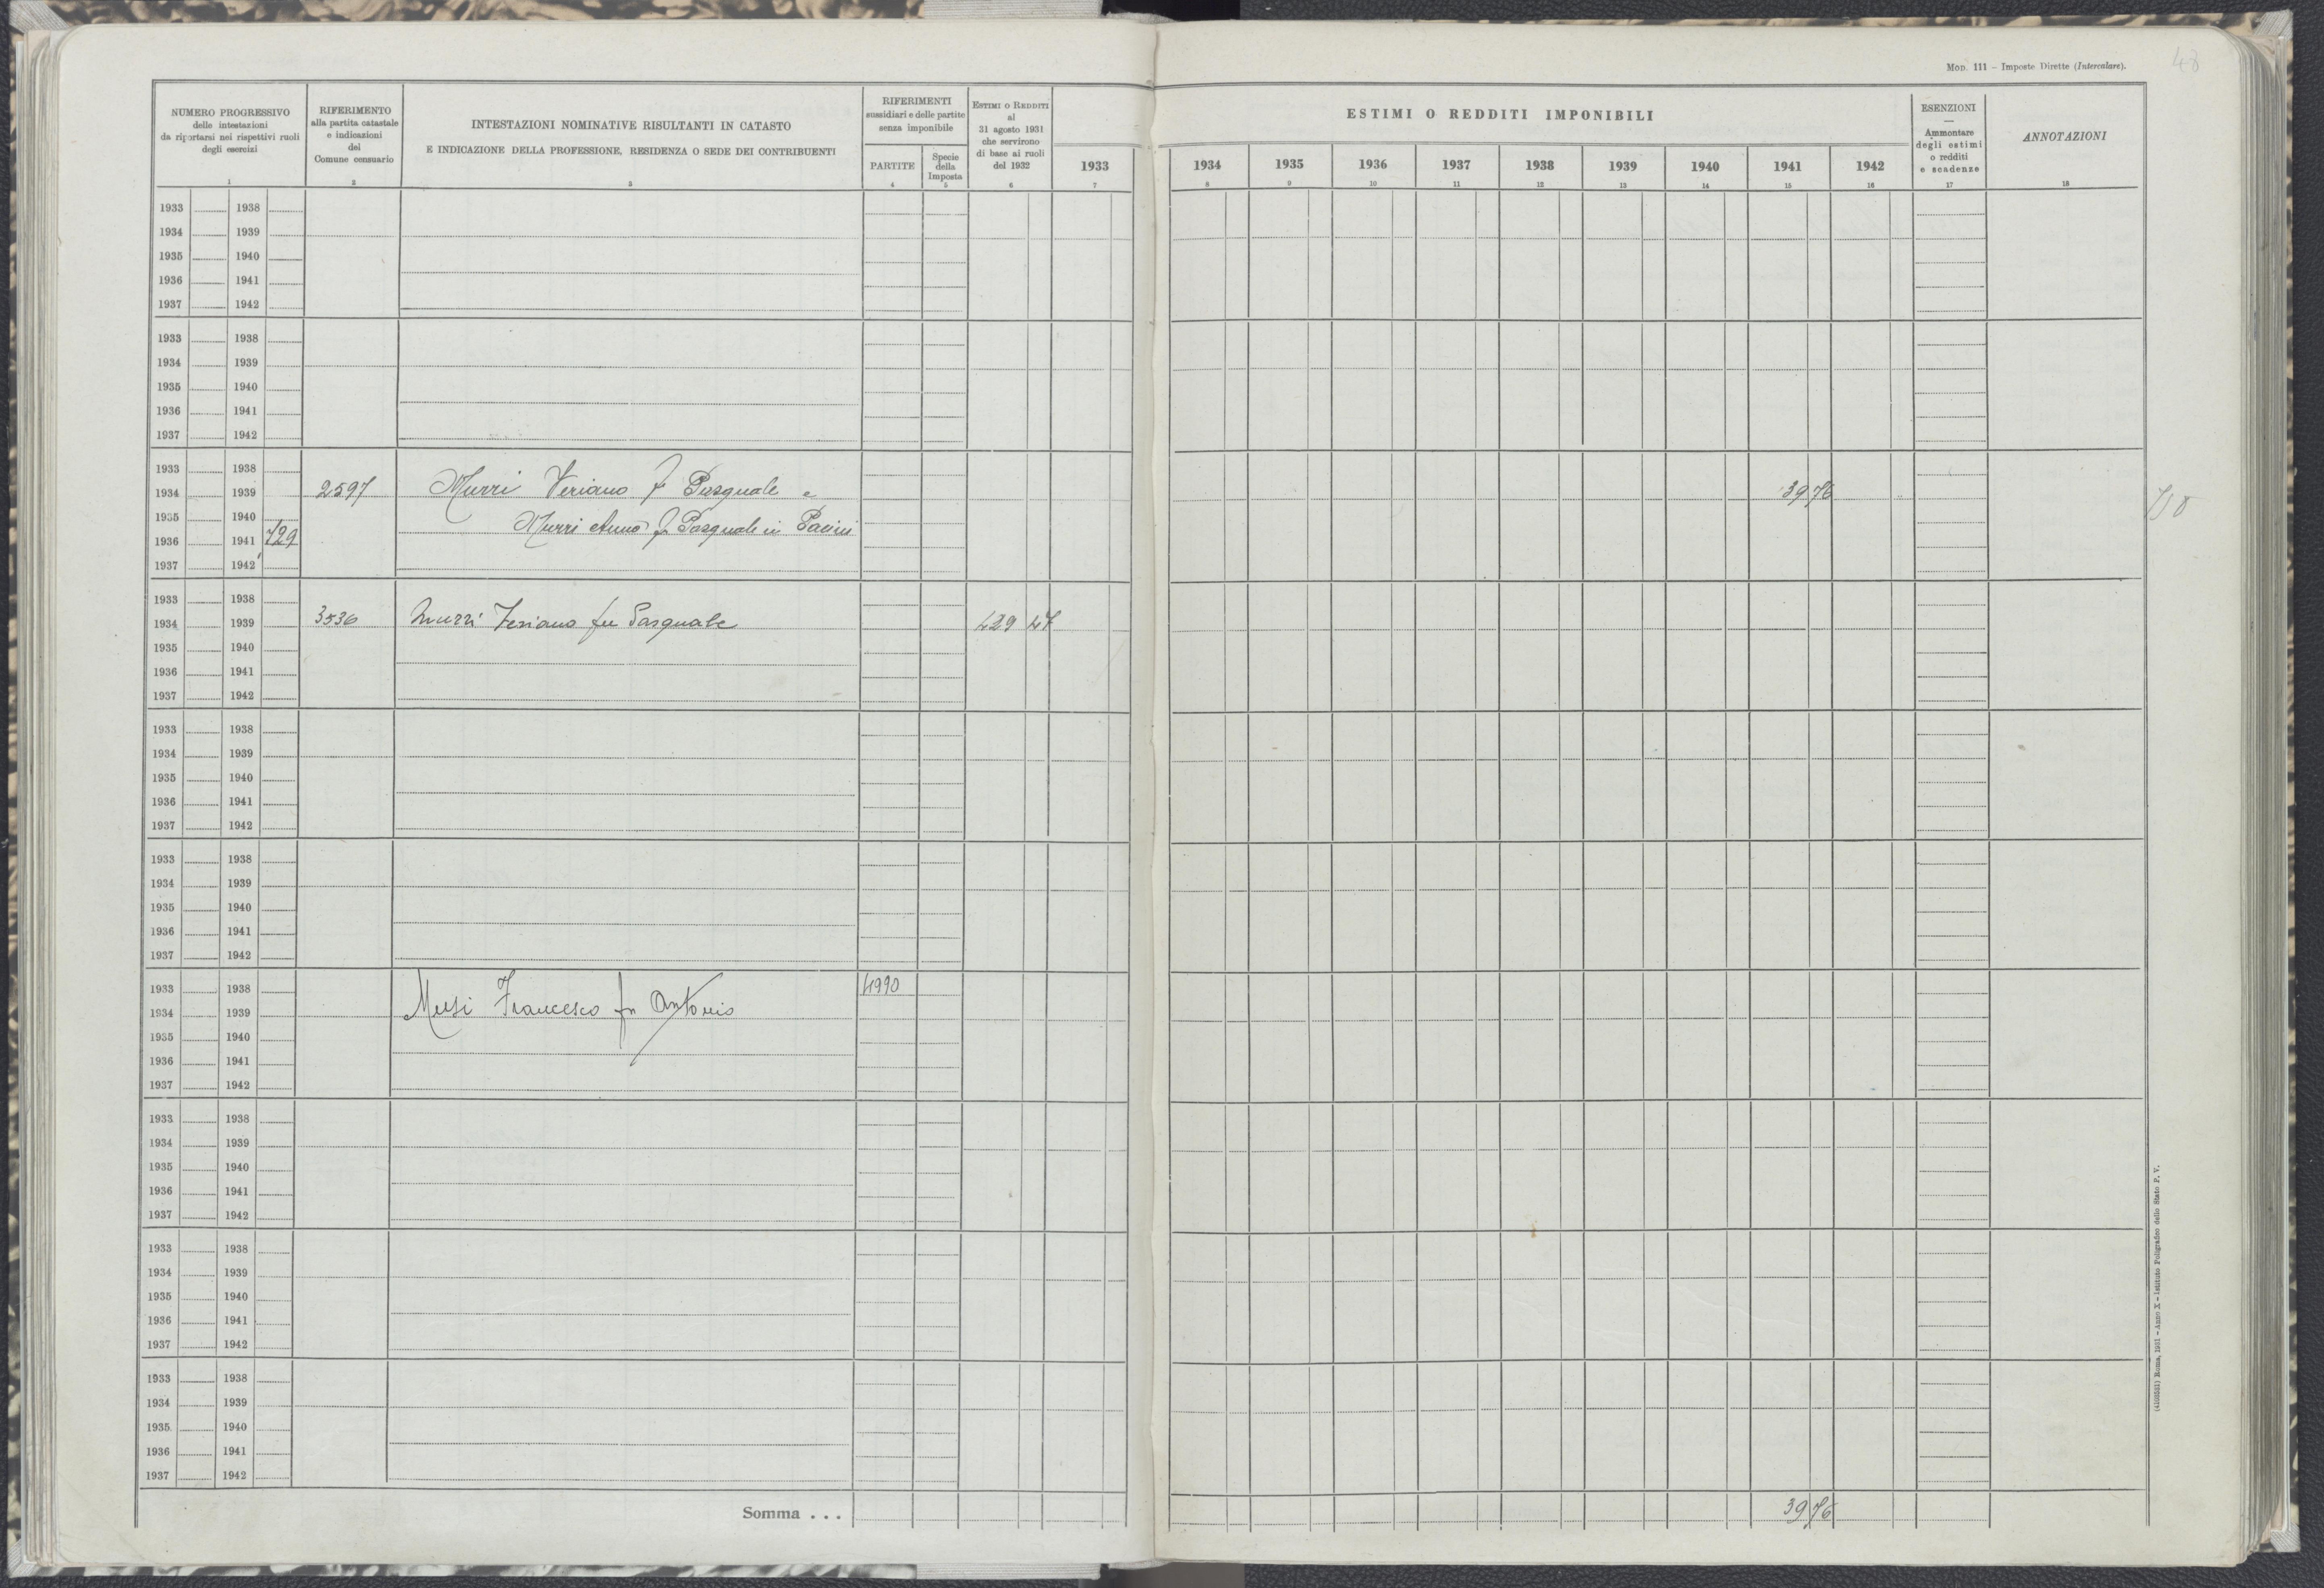 48
MOD. 111 – Imposte Dirette (Intercalare).
NUMERO PROGRESSIVO
delle intestazioni
da riportarsi nei rispettivi ruoli
degli esercizi
1
RIFERIMENTO
alla partita catastale
e indicazioni
del
Comune censuario
2
INTESTAZIONI NOMINATIVE RISULTANTI IN CATASTO
E INDICAZIONE DELLA PROFESSIONE, RESIDENZA O SEDE DEI CONTRIBUENTI
3
RIFERIMENTI
sussidiari e delle partite
senza imponibile
PARTITE
4
Specie
della
Imposta
5
ESTIMI O REDDITI
al
31 agosto 1931
che servirono
di base ai ruoli
del 1932
6
1933
7
ESTIMI O REDDITI IMPONIBILI
1934 1935 1936 1937 1938 1939 1940 1941 1942
8 9 10 11 12 13 14 15 16
ESENZIONI
—
Ammontare
degli estimi
o redditi
e scadenze
17
ANNOTAZIONI
18
1933 1938
1934 1939
1935 1940
1936 1941
1937 1942
1933 1938
1934 1939
1935 1940
1936 1941
1937 1942
1933 1938
1934 1939 2597 Murri Veriano f Pasquale e 3976
1935 1940 Murri Anna f Pasquale in Pacini
1936 1941 729
1937 1942
1933 1938
1934 1939 3536 Murri Veriano fu Pasquale 429 47
1935 1940
1936 1941
1937 1942
1933 1938
1934 1939
1935 1940
1936 1941
1937 1942
1933 1938
1934 1939
1935 1940
1936 1941
1937 1942
1933 1938 4990
1934 1939 Francesco fu Antonio
1935 1940
1936 1941
1937 1942
1933 1938
1934 1939
1935 1940
1936 1941
1937 1942
1933 1938
1934 1939
1935 1940
1936 1941
1937 1942
1933 1938
1934 1939
1935 1940
1936 1941
1937 1942
Somma . . . 3976
(4103531) Roma, 1931 – Anno X – Istituto Poligrafico dello Stato P. V.